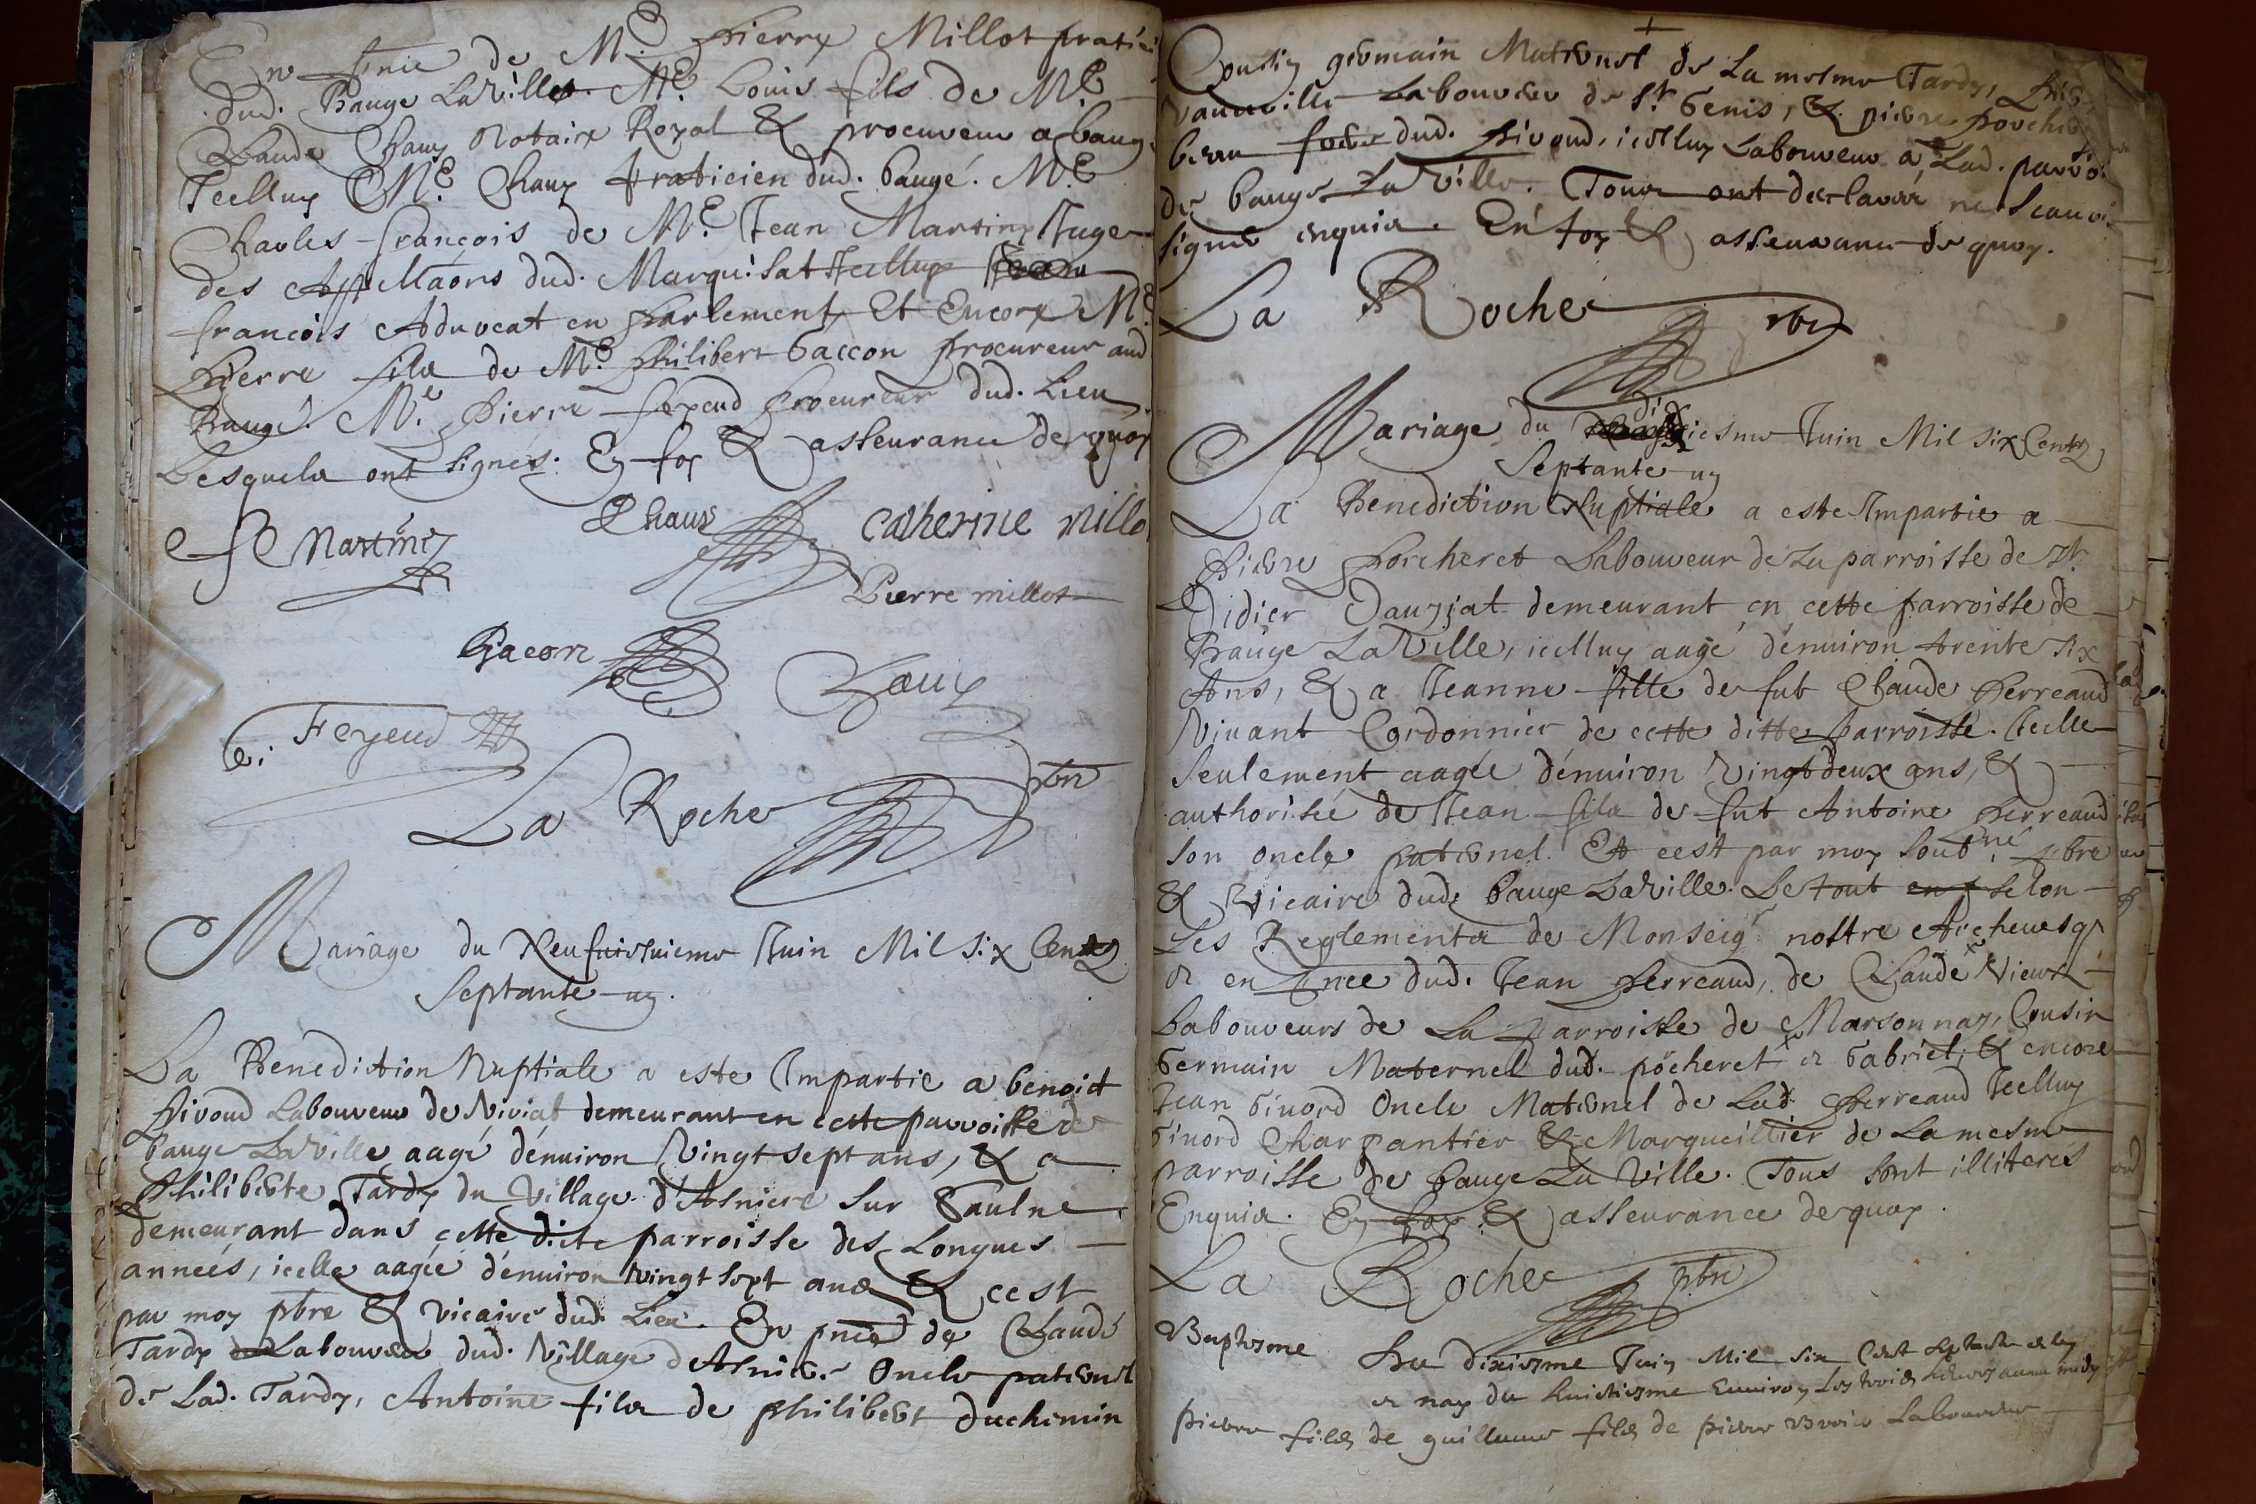 En pnce de Me Pierre Millot pratici
dud. Baugé La Ville. Me Louis fils de Me
Claude Chaux Notaire Royal & procureur a baug
Jcelluy Me Chaux praticien dud. baugé. Me
Charles François de Me Jean Martin Juge
des App dud. Marquisat Jcelluy
françois Aduocat en parlement, Et Encore Me
Pierre fils de Me Philibert Gaccon procureur aud
Baugé. Me Pierre feyeud procureur dud. Lieu
Lesquels ont signés. En foy & asseurance de quoy
Martin Chaux Catherine Millo
Pierre millot
Gacon Chaux
Feyeud
La Roche pbre
Mariage du Neufuiesme Juin Mil Six Centz
Septante un.
La Benediction Nuptiale a este Impartie a benoict
Piuoud Laboureur de Viriat demeurant en cette parroisse de
bauge La Ville, aagé d'enuiron Vingt sept ans, & a
Philiberte Tardy du Village d'Asniere sur Saulne
demeurant dans cette dicte parroisse des Longues
années, icelle aagée d'enuiron vingt sept ans & cest
par moy pbre & vicaire dud. Lieu. En pnce de Claude
Tardy Laboureur dud. Village d'Asniere Oncle paternel
de Lad. Tardy, Antoine fils de philibert duchemin
Cousin germain Maternel de La mesme Tardy,
Laboureur de St Genis, & pierre
dud. Piuoud, icelluy Laboureur a Lad. parroi
de bauge La Ville. Tous ont declaré ne scauoi
signé enquis. En foy & asseurance de quoy.
La Roche pbre
Mariage du dixiesme Juin Mil Six Centz
Septante un
La Benediction Nuptiale a este Impartie a
Pierre Porcheret Laboureur de La parroisse de St
Didier Daussiat demeurant en cette parroisse de
Baugé La Ville, icelluy aagé d'enuiron trente six
Ans, & a Jeanne fille de fut Claude Perreaud
Viuant Cordonnier de cette ditte parroisse. Jcelle
seulement aagée d'enuiron Vingt deux ans, &
authorisée de Jean fils de fut Antoine Perreaud
son oncle paternel. Et cest par moy soubné pbre
& Vicaire dud. bauge La Ville. Le tout selon
Les Reglements de Monseigr nostre Archeuesq
& en pnce dud. Jean Perreaud, de Claude Vieux
Laboureurs de La parroisse de Marsonnay, Cousin
Germain Maternel dud. pocheret & Gabriel, & encore
Jean Giuord Oncle Maternel de Lad. Perreaud Jcelluy
Giuord Charpantier & Marqueillier de La mesme
parroisse de bauge La Ville. Tous sont illiterés
Enquis. En foy & asseurance de quoy.
La Roche pbre
Baptesme Du dixiesme Juin Mil Six Cent Septante & un
& nay du huictiesme Enuiron Les trois heures
Pierre fils de guillaume fils de pierre Laboureur